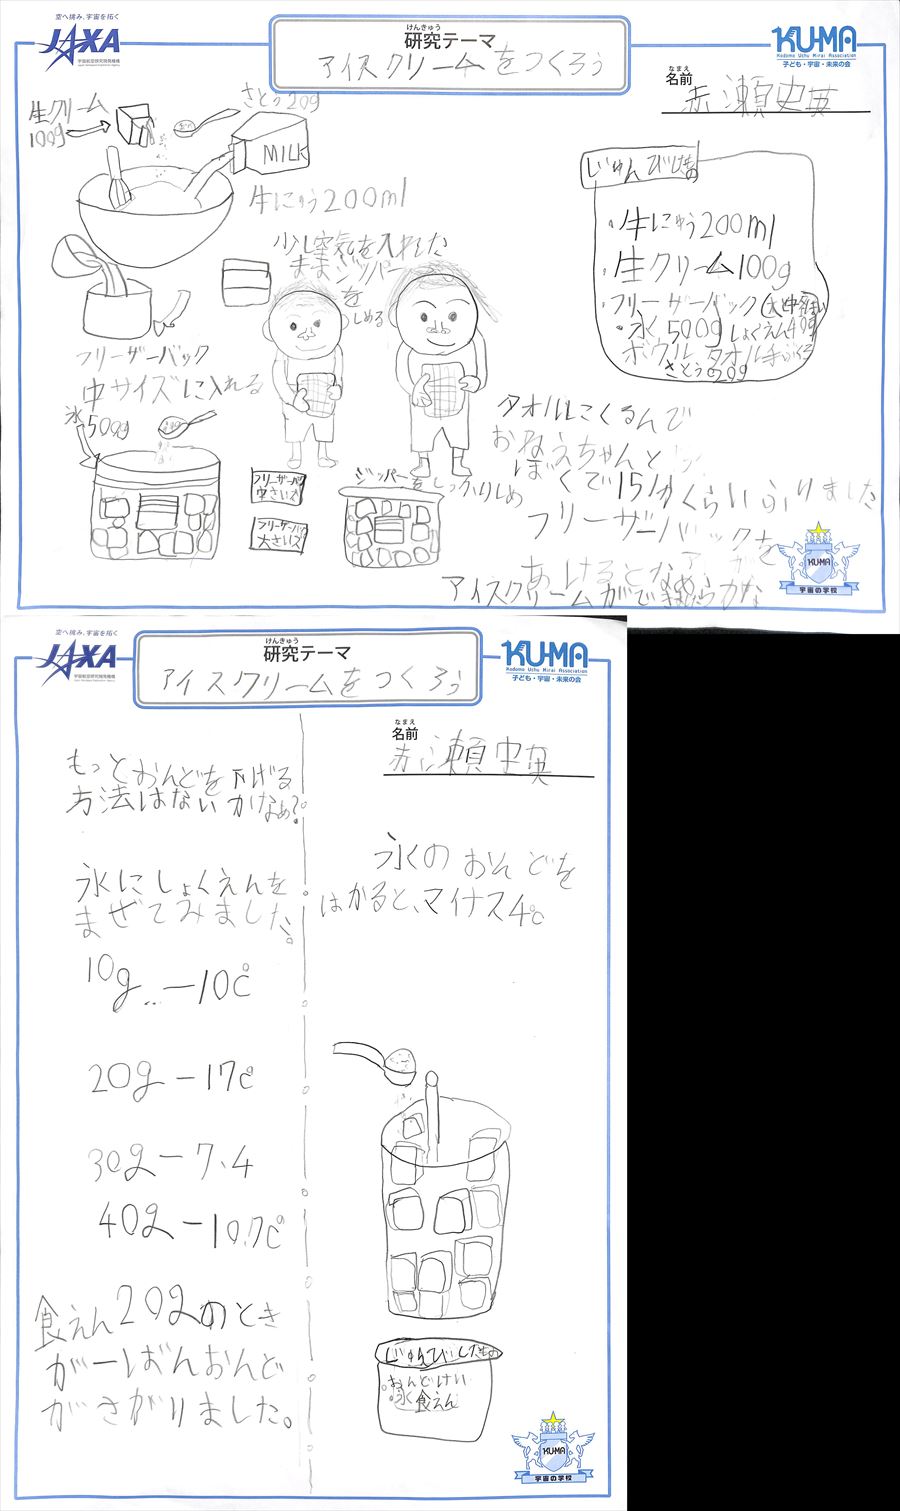 空へ挑み、宇宙を拓く
JAXA
宇宙航空研究開発機構
Japan Aerospace Exploration Agency
けんきゅう
研究テーマ
アイスクリームをつくろう
KUMA
Kodomo Uchu Mirai Association
子ども・宇宙・未来の会
なまえ
名前
赤瀬史英
生クリーム
100g
さとう20g
MILK
牛にゅう200ml
少し空気を入れした
ままジッパー
を
しめる
フリーザーバック
中サイズに入れる
じゅんび
・牛にゅう200ml
・生クリーム100g
・フリーザーバック
・氷500g しょくえん40g
ボウル タオル 手ぶくろ
さとう20g
氷500g
フリーザーバック
中さいズ
フリーザーバック
大さいズ
ジッパーをしっかりしめ
タオルにくるんで
おねえちゃんと
ぼくで15分くらいふりました
フリーザーバックを
あけると
アイスクリームがで
KUMA
宇宙の学校
空へ挑み、宇宙を拓く
JAXA
宇宙航空研究開発機構
Japan Aerospace Exploration Agency
けんきゅう
研究テーマ
アイスクリームをつくろう
KUMA
Kodomo Uchu Mirai Association
子ども・宇宙・未来の会
なまえ
名前
赤瀬史英
もっとおんどを下げる
方法はないかなあ?
氷にしょくえんを
まぜてみました。
10g…−10℃
20g−17℃
30g−7.4
40g−10.7℃
食えん20gのとき
が一ばんおんど
がさがりました。
氷のおんどを
はかると、マイナス4℃
じゅんびしたもの
・おんどけい
・氷 食えん
KUMA
宇宙の学校